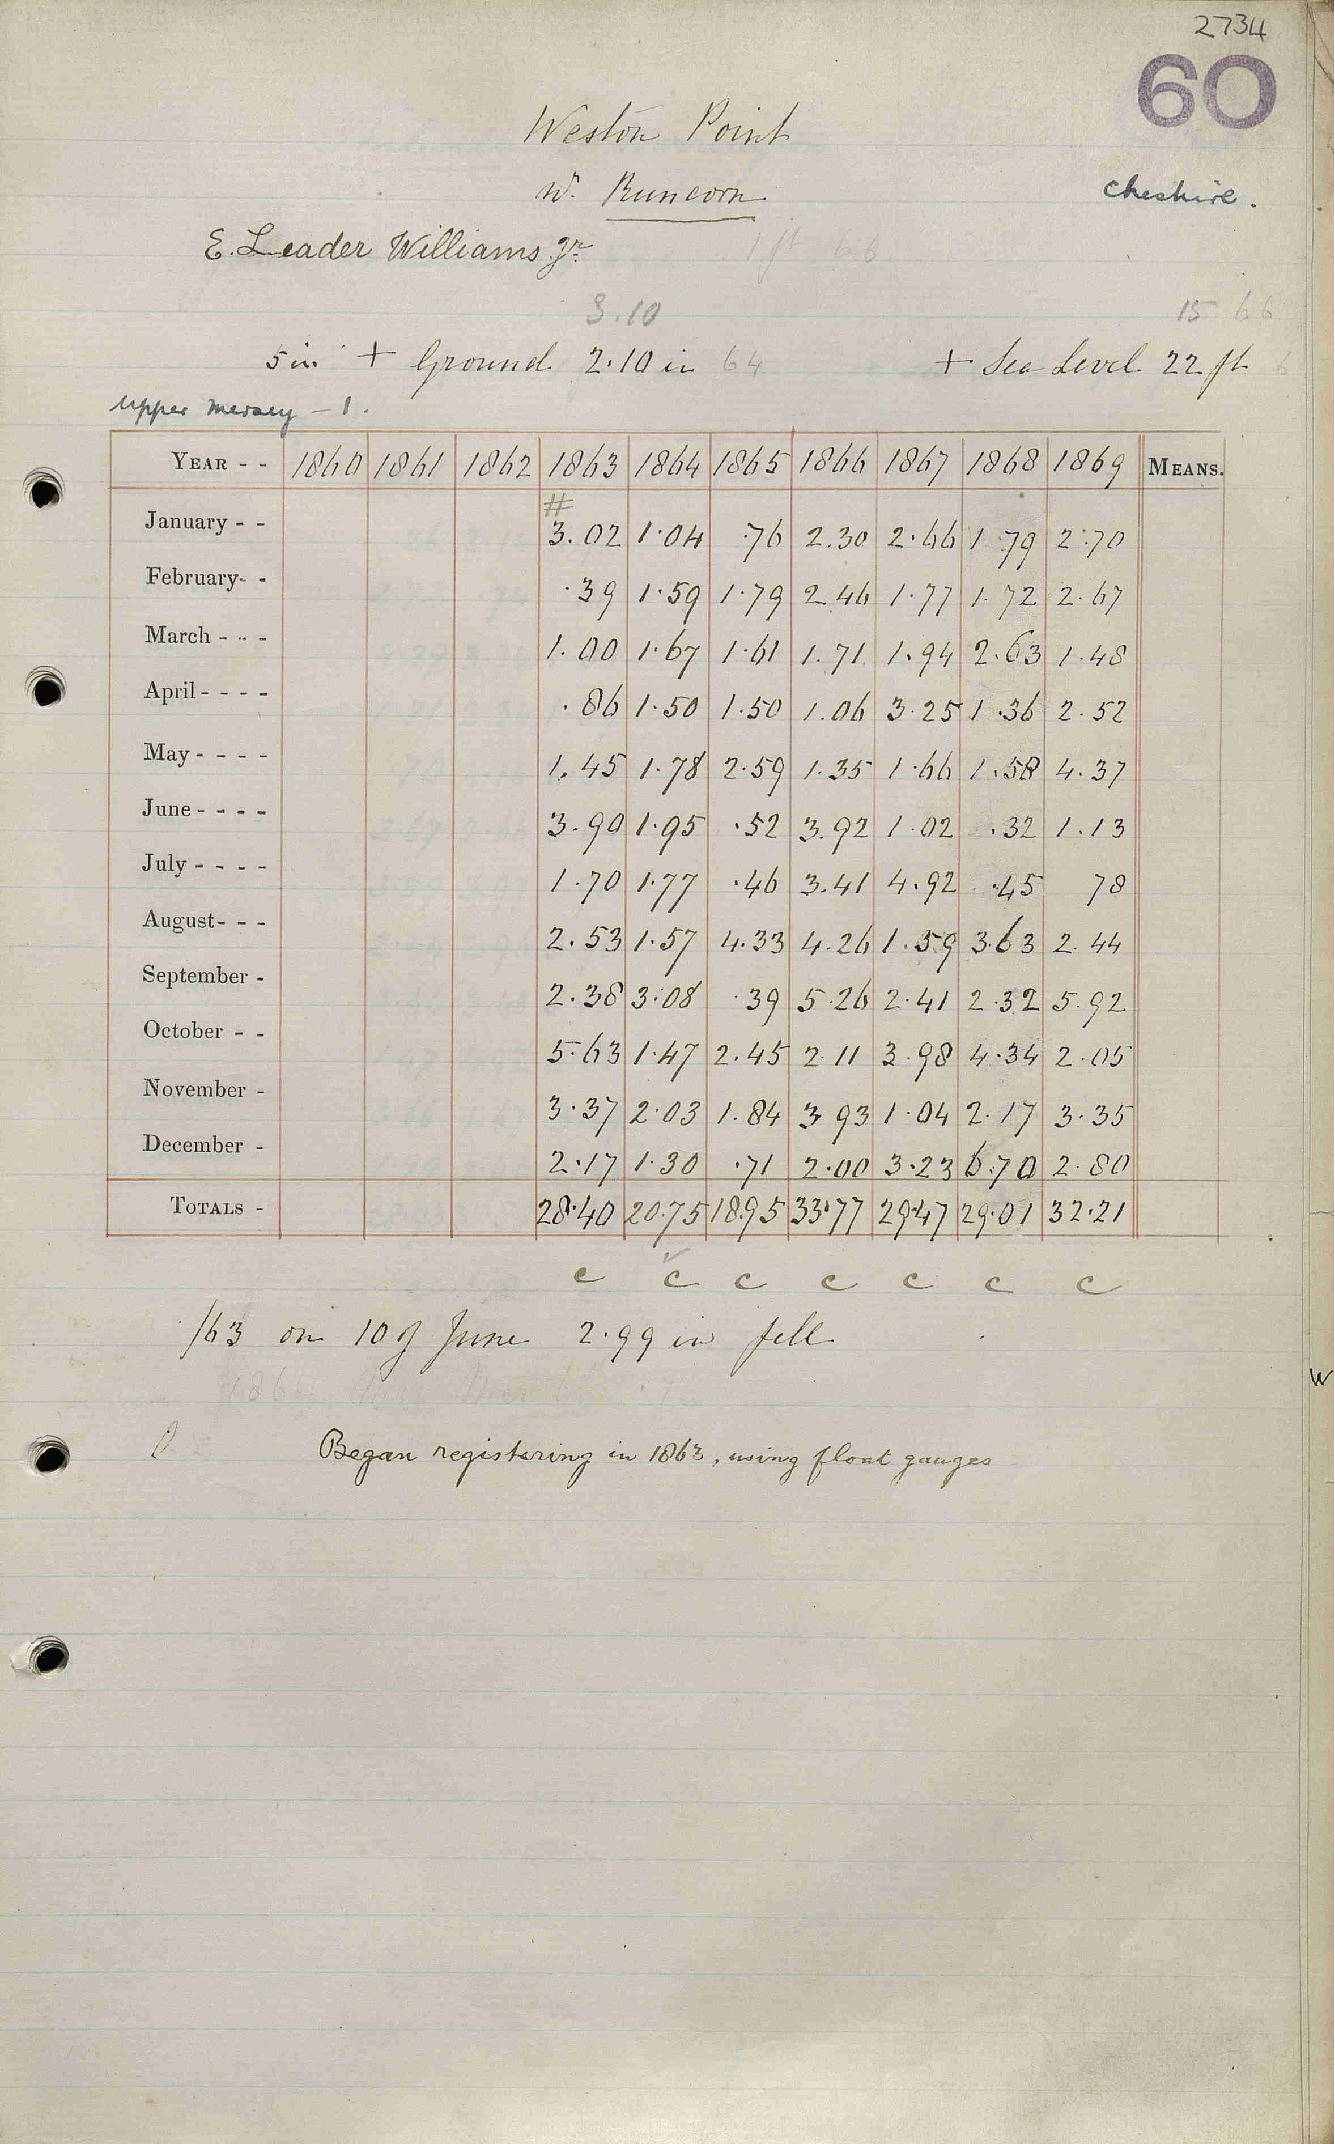 2734
60
Weston Point
nr. Runcorn
Cheshire.
E. Leader Williams Jr.
1 ft 66
3.10
15 66
5 in + Ground 2.10 in 64 + Sea Level 22 ft
Upper Mersey - 1.
YEAR - - 1860 1861 1862 1863 1864 1865 1866 1867 1868 1869 MEANS.
#
January - - 3.02 1.04 .76 2.30 2.66 1.79 2.70
February- - .39 1.59 1.79 2.46 1.77 1.72 2.67
March - - - 1.00 1.67 1.61 1.71 1.94 2.63 1.48
April - - - - .86 1.50 1.50 1.06 3.25 1.36 2.52
May - - - - 1.45 1.78 2.59 1.35 1.66 1.58 4.37
June - - - - 3.90 1.95 .52 3.92 1.02 .32 1.13
July - - - - 1.70 1.77 .46 3.41 4.92 .45 78
August- - - 2.53 1.57 4.33 4.26 1.59 3.63 2.44
September - 2.38 3.08 .39 5.26 2.41 2.32 5.92
October - - 5.63 1.47 2.45 2.11 3.98 4.34 2.05
November - 3.37 2.03 1.84 3.93 1.04 2.17 3.35
December - 2.17 1.30 .71 2.00 3.23 6.70 2.80
TOTALS - 28.40 20.75 18.95 33.77 29.47 29.01 32.21
c c c c c c c
/63 on 10 of June 2.99 in fell
Began registering in 1863, using float gauges